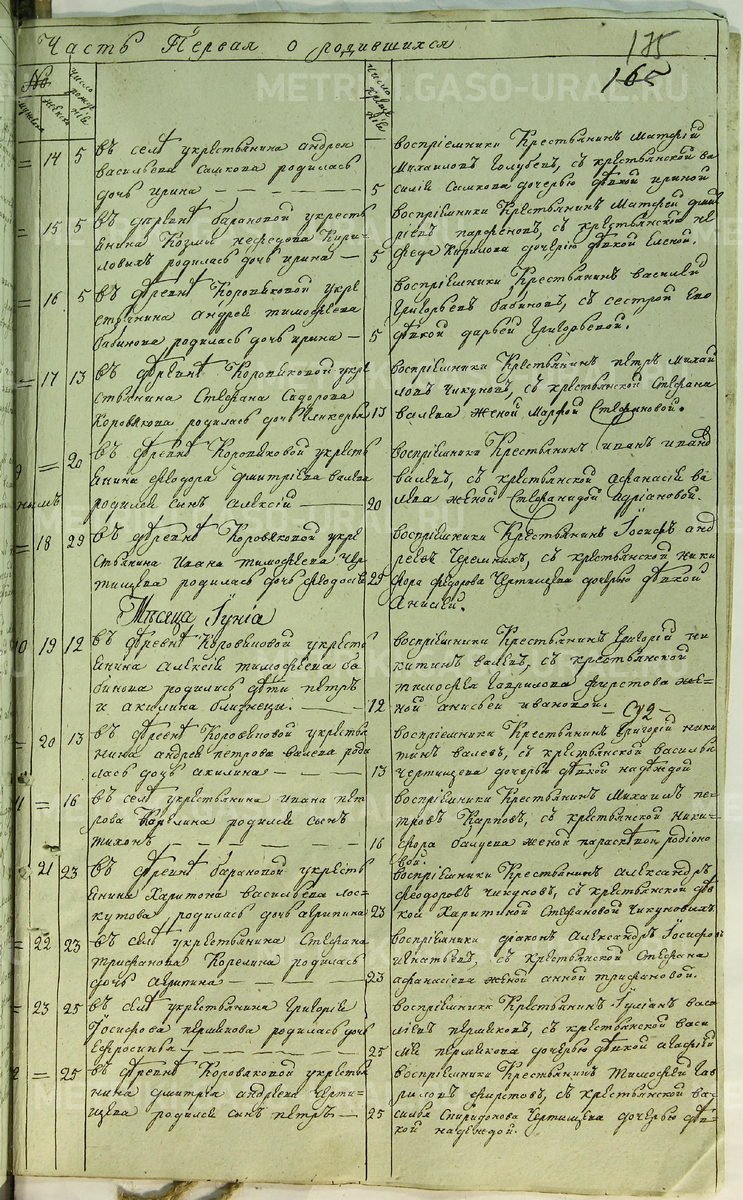 Часть Первая о родившихся
175
165
№
мужеск
женск
число рождѣнія
число крещенія
= 14 5 Въ селѣ укрестьянина андрея
васильева самкова родилась
дочь ирина
5
воспріемники Крестьянинъ Матфій
Михаиловъ Голубевъ, съ крестьянской ва
силія самкова дочерью дѣвкой ириной
= 15 5 Въ деревнѣ барановой укресть
янина Козмы нефедова Кири-
ловыхъ родилась дочь ирина
5
воспріемники Крестьянинъ Матфей дми
ріевъ парфеновъ, съ крестьянской не
феда Кирилова дочерью дѣвкой Еленой.
= 16 5 Въ деревнѣ Коровяковой укре
стьянина андрея тимофеева
бабинова родилась дочь ирина
5
воспріемники Крестьянинъ василей
Григорьевъ бабиновъ, съ сестрой Его
дѣвкой дарьей Григорьевой.
= 17 13 Въ деревнѣ Коровяковой укре
стьянина Стефана Сидорова
Коровякова родилась дочь гликерья
13
воспріемники Крестьянинъ петръ Михай
ловъ Чикуновъ, съ крестьянской Стефана
валева женой Марфой Стефановой.
9 = 20 Въ деревнѣ Коровяковой укресть
янина федора дмитріева валева
родился сынъ алексій
20
воспріемники Крестьянинъ иванъ иванов
валевъ, съ крестьянской афанасія ва
лева женой Стефанидой Адріановой.
= 18 29 Въ деревнѣ Коровяковой укре
стьянина Ивана тимофеева Чер
тищева родилась дочь феодосья
29
воспріемники Крестьянинъ Іосифъ анд
реевъ Черемныхъ, съ крестьянской ники
фора федорова Чертищева дочерью дѣвкой
Анисіей.
Мѣсяца Іунія
10 19 12 Въ деревнѣ Коровяковой укресть
янина алексія тимофеева ба
бинова родились дѣти петръ
и акилина близнецы.
12
воспріемники Крестьянинъ Григорій ни
китинъ валевъ, съ крестьянской
тимофея Гаврилова фирстова же-
ной анисьей ивановой.
= 20 13 Въ деревнѣ Коровяковой укрестья
нина андрея петрова валева роди
лась дочь акилина
13
воспріемники Крестьянинъ Григорій ники
тинъ валевъ, съ крестьянской василья
Чертищева дочерью дѣвкой надеждой
11 = 16 Въ селѣ укрестьянина ивана пет
рова Карелина родился сынъ
тихонъ
16
воспріемники Крестьянинъ Михаилъ пе-
тровъ Карповъ, съ крестьянской ники-
фора балуева женой параскевой родіоно
вой.
21 23 Въ деревнѣ барановой укресть
янина Харитона васильева лос-
кутова родилась дочь агрипина
23
воспріемники Крестьянинъ александръ
феодоровъ чикуновъ, съ крестьянской дѣв
кой Харитиной Стефановой Чикуновыхъ
= 22 23 Въ селѣ укрестьянина Стефана
трифанова Корелина родилась
дочь агрипина
23
воспріемники діаконъ Александръ Іосифовъ
игнатьевъ, съ крестьянской Стефана
афанасіева женой анной трифановой.
= 23 25 Въ селѣ укрестьянина Григорія
Іосифова пермякова родилась дочь
Ефросинья
25
воспріемники Крестьянинъ Іуліанъ васи
лѣевъ пермяковъ, съ крестьянской васи
лія пермякова дочерью дѣвкой агафьей
= 25 Въ деревнѣ Коровяковой укрестья
нина дмитрія андреева Черти-
щева родился сынъ петръ
25
воспріемники Крестьянинъ тимофей Гав
риловъ фирстовъ, съ крестьянской ва-
силья Спиридонова Чертищева дочерью дѣв-
кой надеждой.